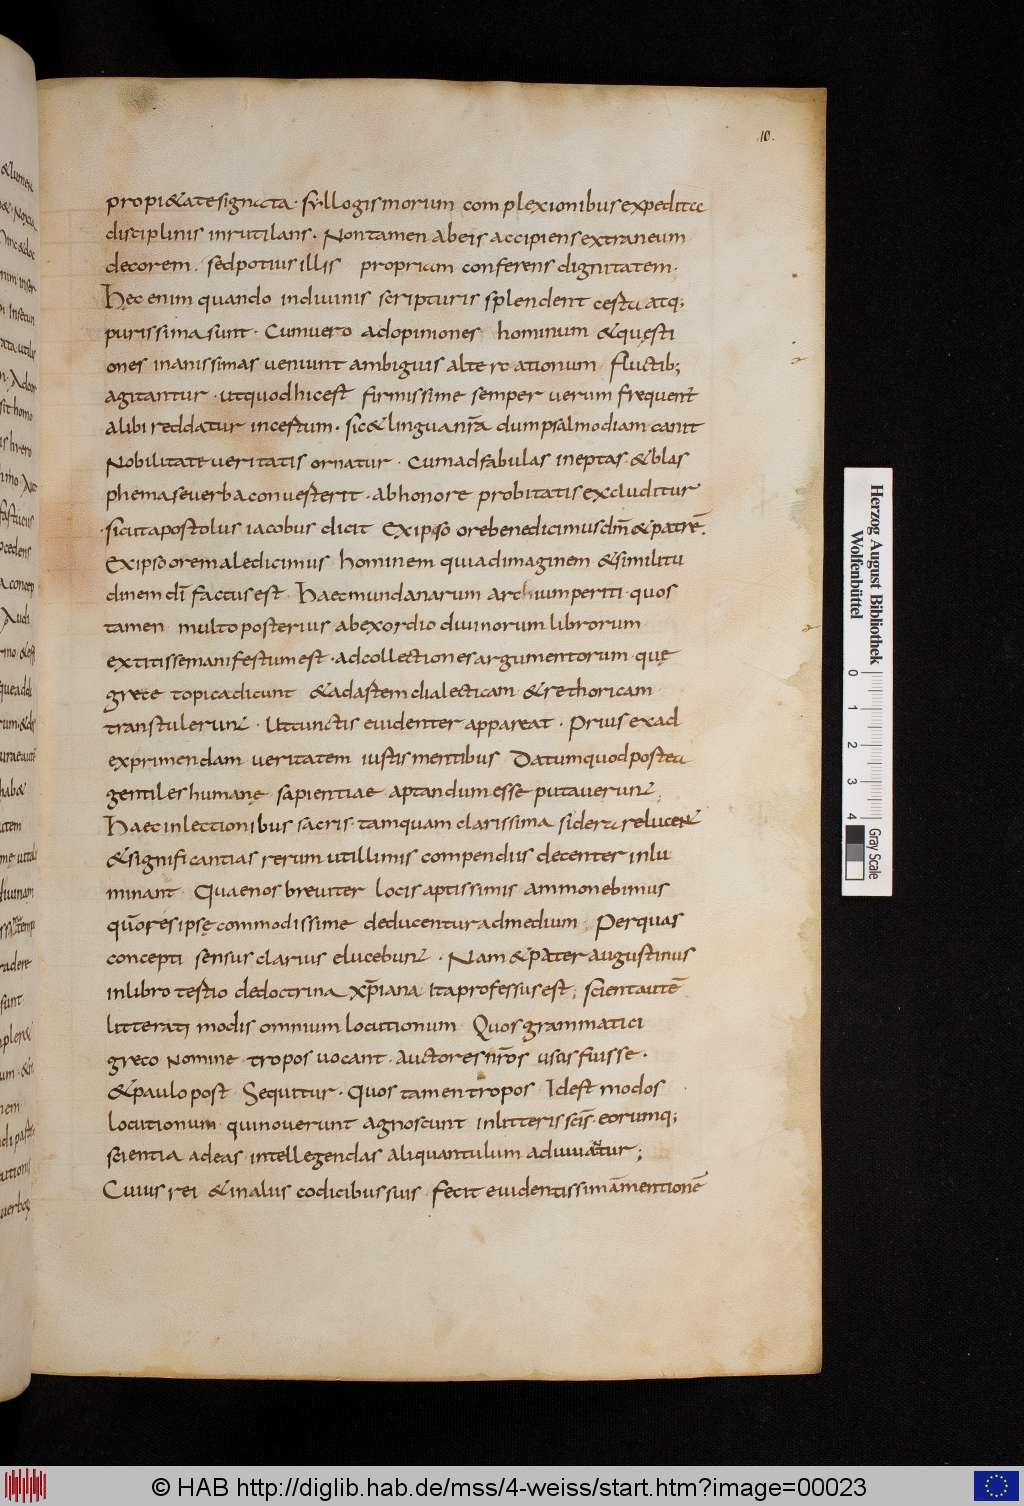 10.
propi&ate signata · syllogismorum complexionibus expedita
disciplinis inrutilans · Non tamen ab eis accipiens extraneum
decorem · sed potius illis propriam conferens dignitatem ·
Hęc enim quando in diuinis scripturis splendent certa atq;
purissima sunt · Cum uero ad opiniones hominum & quęsti
ones inanissimas ueniunt ambiguis altercationum fluctib;
agitantur · ut quod hic est firmissime semper uerum frequent
alibi reddatur incestum · sic & lingua nr̄a dum psalmodiam canit
Nobilitate ueritatis ornatur · Cum ad fabulas ineptas · & blas
phemase uerba conuesterit · ab honore probitatis excluditur
sicut apostolus iacobus dicit Ex ipso ore benedicimus dn̄m & patrē ·
Ex ipso ore maledicimus hominem qui ad imaginem & similitu
dinem dī factus est · Haec mundanarum artium periti · quos
tamen multo posterius ab exordio diuinorum librorum
extitisse manifestum est · ad collectiones argumentorum quę
grece topica dicunt & ad astem dialecticam & rethoricam
transtulerunt · Ut cunctis euidenter appareat · Prius ex ad
exprimendam ueritatem iustis mentibus Datum quod postea
gentiles humanę sapientiae aptandum esse putauerunt ;
Haec in lectionibus sacris · tamquam clarissima sidera relucent
& significantias rerum utillimis compendiis decenter inlu
minant · Quae nos breuiter locis aptissimis ammonebimus
quō res ipsę commodissime deducentur ad medium · Per quas
concepti sensus clarius elucebunt · Nam & pater augustinus
in libro testio de doctrina xp̄iana ita professus est ; scient autē
litterati modis omnium locutionum Quos grammatici
greco Nomine tropos uocant · auctores nr̄os usos fuisse ·
& paulo post Sequitur · Quos tamen tropos Id est modos
locutionum qui nouerunt agnoscunt in litteris scīs · eorumq;
scientia ad eas intellegendas aliquantulum adiuuantur ;
Cuius rei & in alus codicibus suis fecit euidentissimā mentionē
Herzog August Bibliothek
Wolfenbüttel
0 1 2 3 4
Gray Scale
© HAB http://diglib.hab.de/mss/4-weiss/start.htm?image=00023